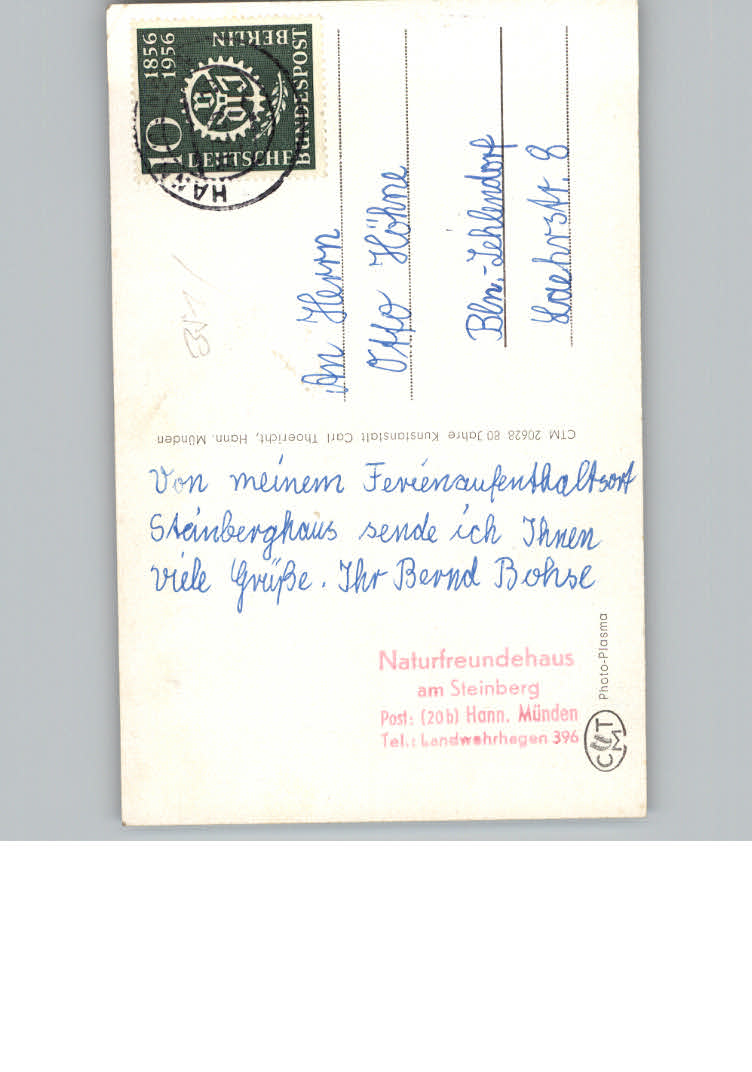 1856
1956
BERLIN
10
DEUTSCHE
BUNDESPOST
VDI
An Herrn
Otto Höhne
Bln.-Zehlendorf
8
CTM 20628 80 Jahre Kunstanstalt Carl Thoericht, Hann. Münden
Von meinem Ferienaufenthaltsort
Steinberghaus sende ich Ihnen
viele Grüße. Ihr Bernd Bohse
Naturfreundehaus
am Steinberg
Post: (20b) Hann. Münden
Tel.: Landwehrhagen 396
Photo-Plasma